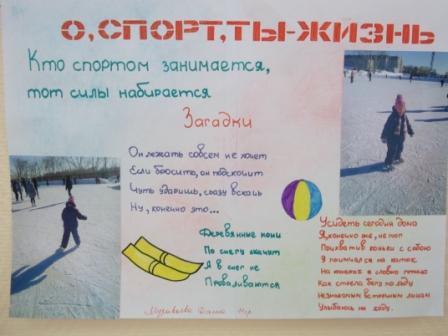 О, СПОРТ, ТЫ-ЖИЗНЬ
Кто спортом занимается,
тот силы набирается
Загадки
Он лежать совсем не хочет
Если бросить, он подскочит
Чуть ударишь, сразу вскачь
Ну, конечно это...
Деревянные кони
По снегу скачут
А в снег не
Проваливаются
Усидеть сегодня дома
Я, конечно же, не мог
Прихватив коньки с собою
Я помчался на каток.
На коньках я словно птица
Как стрела бегу по льду
Незнакомым встречным лицам
Улыбаюсь на ходу.
Даша